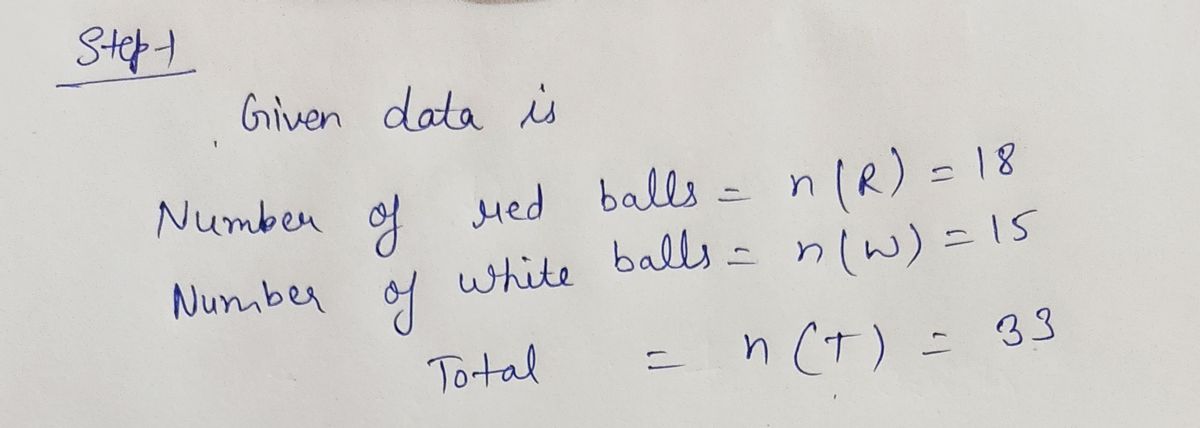 Step-1
Given data is
Number of red balls = n(R) = 18
Number of white balls = n(W) = 15
Total = n(T) = 33